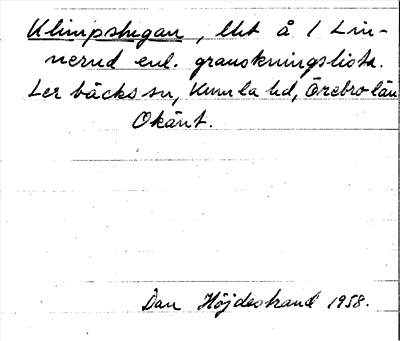 Klimpstugan, lht å 1 Lin-
nerud enl. granskningslista.
Lerbäcks sn, Kumla hd, Örebro län
Okänt.
Dan Höjdestrand 1958.